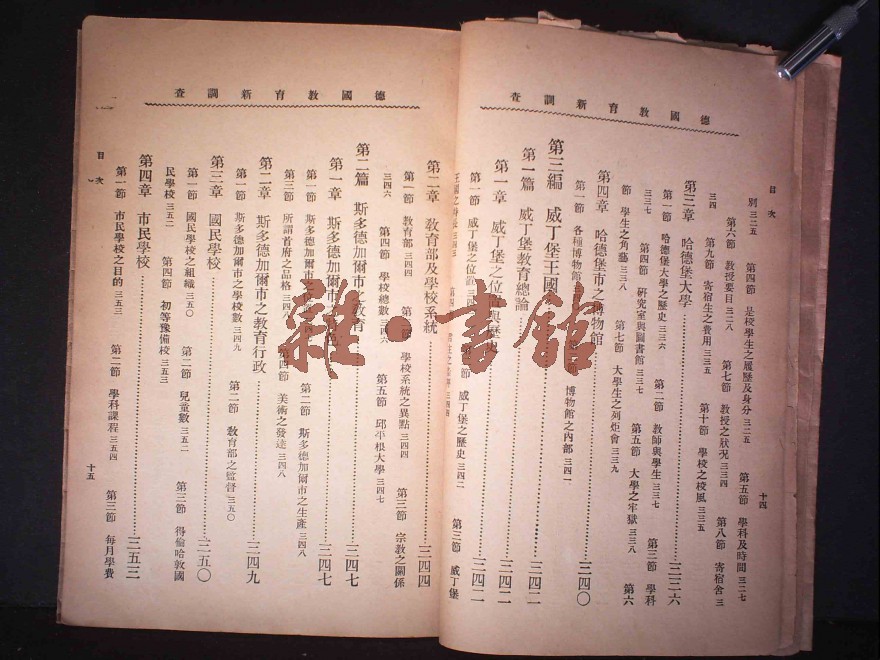 德國教育新調查
目次
十四
別 三二五　第四節　是校學生之履歷及身分 三二五　第五節　學科及時間 三二七
第六節　教授要目 三二八　第七節　教授之狀況 三三四　第八節　寄宿舍 三
三四　第九節　寄宿生之費用 三三五　第十節　學校之校風 三三五
第三章　哈德堡大學 三三六
第一節　哈德堡大學之歷史 三三六　第二節　教師與學生 三三七　第三節　學科
三三七　第四節　研究室與圖書館 三三七　第五節　大學之牢獄 三三八　第六
節　學生之角藝 三三八　第七節　大學生之列炬會 三三九
第四章　哈德堡市之博物館 三四〇
第一節　各種博物館 博物館之內部 三四一
第三編　威丁堡王國 三四二
第一篇　威丁堡教育總論 三四二
第一章　威丁堡之位置與歷史 三四二
第一節　威丁堡之位置 節　威丁堡之歷史 三四二　第三節　威丁堡
德國教育新調查
目次
十五
第二章　教育部及學校系統 三四四
第一節　教育部 三四四 學校系統之異點 三四四　第三節　宗教之關係
三四六　第四節　學校總數 三四六　第五節　邱平根大學 三四七
第二篇　斯多德加爾市之教育 三四七
第一章　斯多德加爾市 三四七
第一節　斯多德加爾市之 第二節　斯多德加爾市之生產 三四八
第三節　所謂首府之品格 三四八　第四節　美術之發達 三四八
第二章　斯多德加爾市之教育行政 三四九
第一節　斯多德加爾市之學校數 三四九　第二節　教育部之監督 三五〇
第三章　國民學校 三五〇
第一節　國民學校之組織 三五〇　第二節　兒童數 三五二　第三節　得倫哈敦國
民學校 三五二　第四節　初等豫備校 三五三
第四章　市民學校 三五三
第一節　市民學校之目的 三五三　第二節　學科課程 三五四　第三節　每月學費
雜·書館